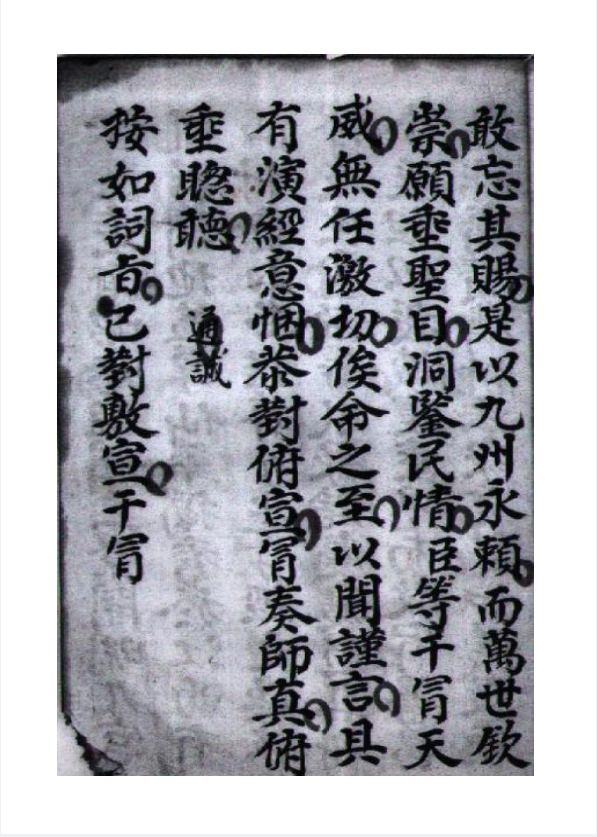 敢忘其賜是以九州永頼而萬世欽
崇願埀聖目洞鑒民情臣等干冐天
威無任激切俟命之至以聞謹言具
有演經意悃㳟對俯宣冐奏師真俯
埀聦聴　通誠
按如詞㫖已對敷宣干冐